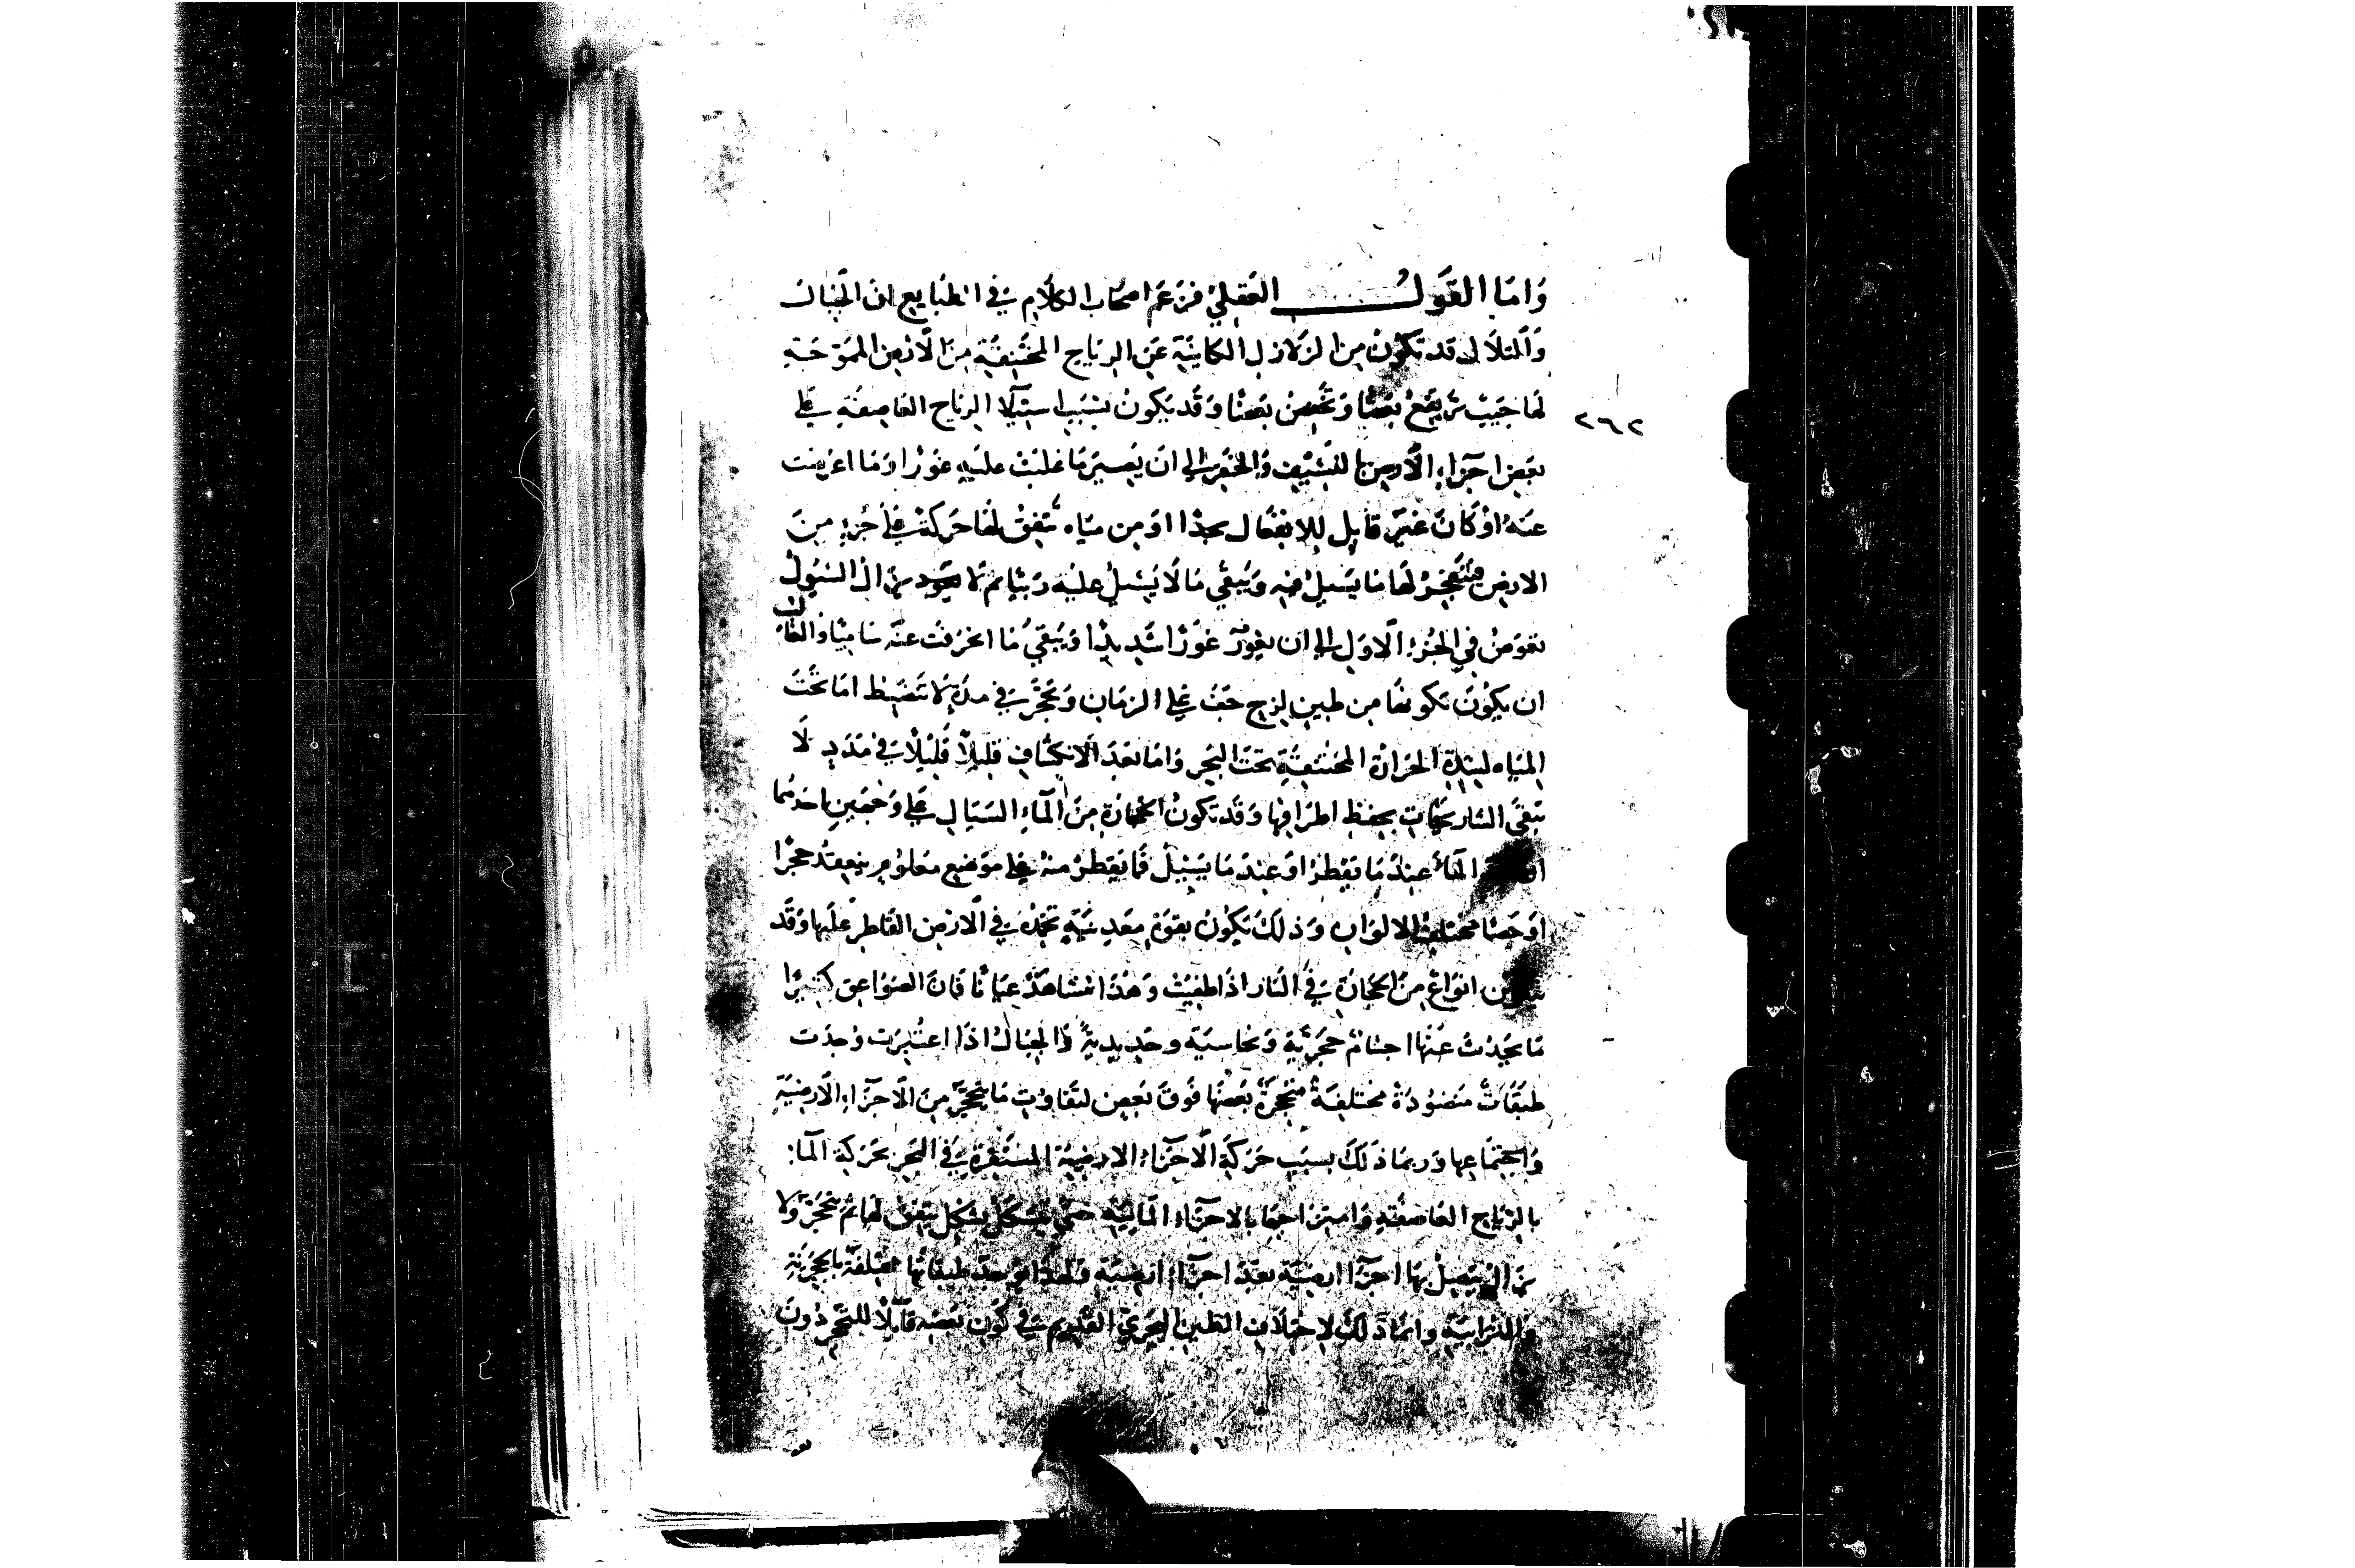 وَامَّا القَولُ العَقلِيُّ فزَعَمَ اصحَاب الكلَام فى الطبَايع انَّ الجبَال
وَالتلَال قد تكونُ مِن الزلَازل الكاينَةِ عَن الريَاح المحتَقِنَةِ مِنَ الأرض الموَّحَةِ
لهَا حَيثُ ترفعُ بَعضًا وَتخفِضُ بَعضًا وَقَد يَكونُ بسَبَب استيلَا الريَاح العَاصِفَةِ عَلى
بعَض اجزَاءِ الأرض بالنسْفِ وَالحَفرِ الى ان يَصيرَ مَا غلبَتْ عليهِ غوْرًا وَمَا اعرضت
عَنهُ اوْ كَانَ غيرَ قابل للانفعَال بحذا اوْ مِن ميَاه تتفِقُ لهَا حَركَة عَلى جُزءٍ مِنَ
الارض فينفَجِرُ لهَا مَا يسَيلُ فيهِ وَيَبقَى مَا لَا يَسيلُ عليهِ رَبيًا ثم لا يعود مزال السّيُولُ
تغوصُ فى الجُزءِ الاوَّلِ الى ان يغورَ غَوْرًا شَديدًا وَيَبقَى مَا انحرَفت عنهُ سَاميًا وَالغالب
ان يكونَ تكونهَا مِن طين لزج جَفَّ عَلى الزمَان وَتحجَّرَ فى مدةٍ لا تنضَبط امَا تحتَ
المياه لشدةِ الحَرَارة المحتَقِنَةِ تحتَ البَحر وَامَا بَعدَ الانكشَاف قليلًا قليلًا فى مُدَدٍ لا
تبقى التاريخات بحفظِ اطرَافها وَقَد تكونُ الحجَارة مِنَ المآءِ السَيَال عَلى وَجهَين احَدهُما
المآء عِندَ مَا يَقطرُ اوْ عِندَ مَا يسَيلُ فمَا يَقطرُ منهُ عَلى مَوضِع مَعلومٍ ينعقدُ حجَرًا
اوْ حَصًا مختلفَ الالوَان وَذلكَ يَكونُ بقوَّةٍ مَعدِنيَّةٍ تحدُثُ فى الأرض القَاطِر عليهَا وَقَد
انوَاعٌ مِنَ الحجَارَةِ فى النار اذَا طفِيَتْ وَهَذَا مُشاهَدٌ عِيَانًا فَانَّ الصوَاعق كثيرًا
مَا يَحدُثُ عَنهَا اجسَامٌ حجَريَّة وَنحاسيَّة وحَديديَّةٌ وَالجبَالُ اذَا اعتُبِرَت وُجدَت
طبَقَاتٌ مَنضُودَةٌ مختلفَةٌ متحجِّرَةٌ بَعضُهَا فَوقَ بَعض لتفَاوُتِ مَا يتحجَّرُ مِنَ الأجزَاءِ الأرضِيَّةِ
وَاجتمَاعِها وَربمَا ذَلكَ بسَبَب حَركَةِ الأجزَاءِ الارضِيَّة المستَقرَّةِ فى البَحر بحَركَة المآءِ
بالريَاح العَاصفَةِ وَامتزَاجِهَا بالاجزَاءِ المائيَّةِ حَتى تتشكلَ بشكلٍ يتفِقُ لهَا ثمَّ يتحَجَّرُ وَلا
يزَالُ يتَّصلُ بهَا اجزَآ ارضيَّة بَعدَ اجزَاءِ ارضِيَّةٍ وَلهَذا توجَدُ طبقَاتهَا مختلفَةٌ بالحَجَريَّةِ
وَالترَابيَّةِ وَانمَا ذَلكَ لاختلَاف الطين البحَرى القديم فى كَون بَعضه قَابلًا للتحَجُّر دُونَ
بعض
٢٦٢